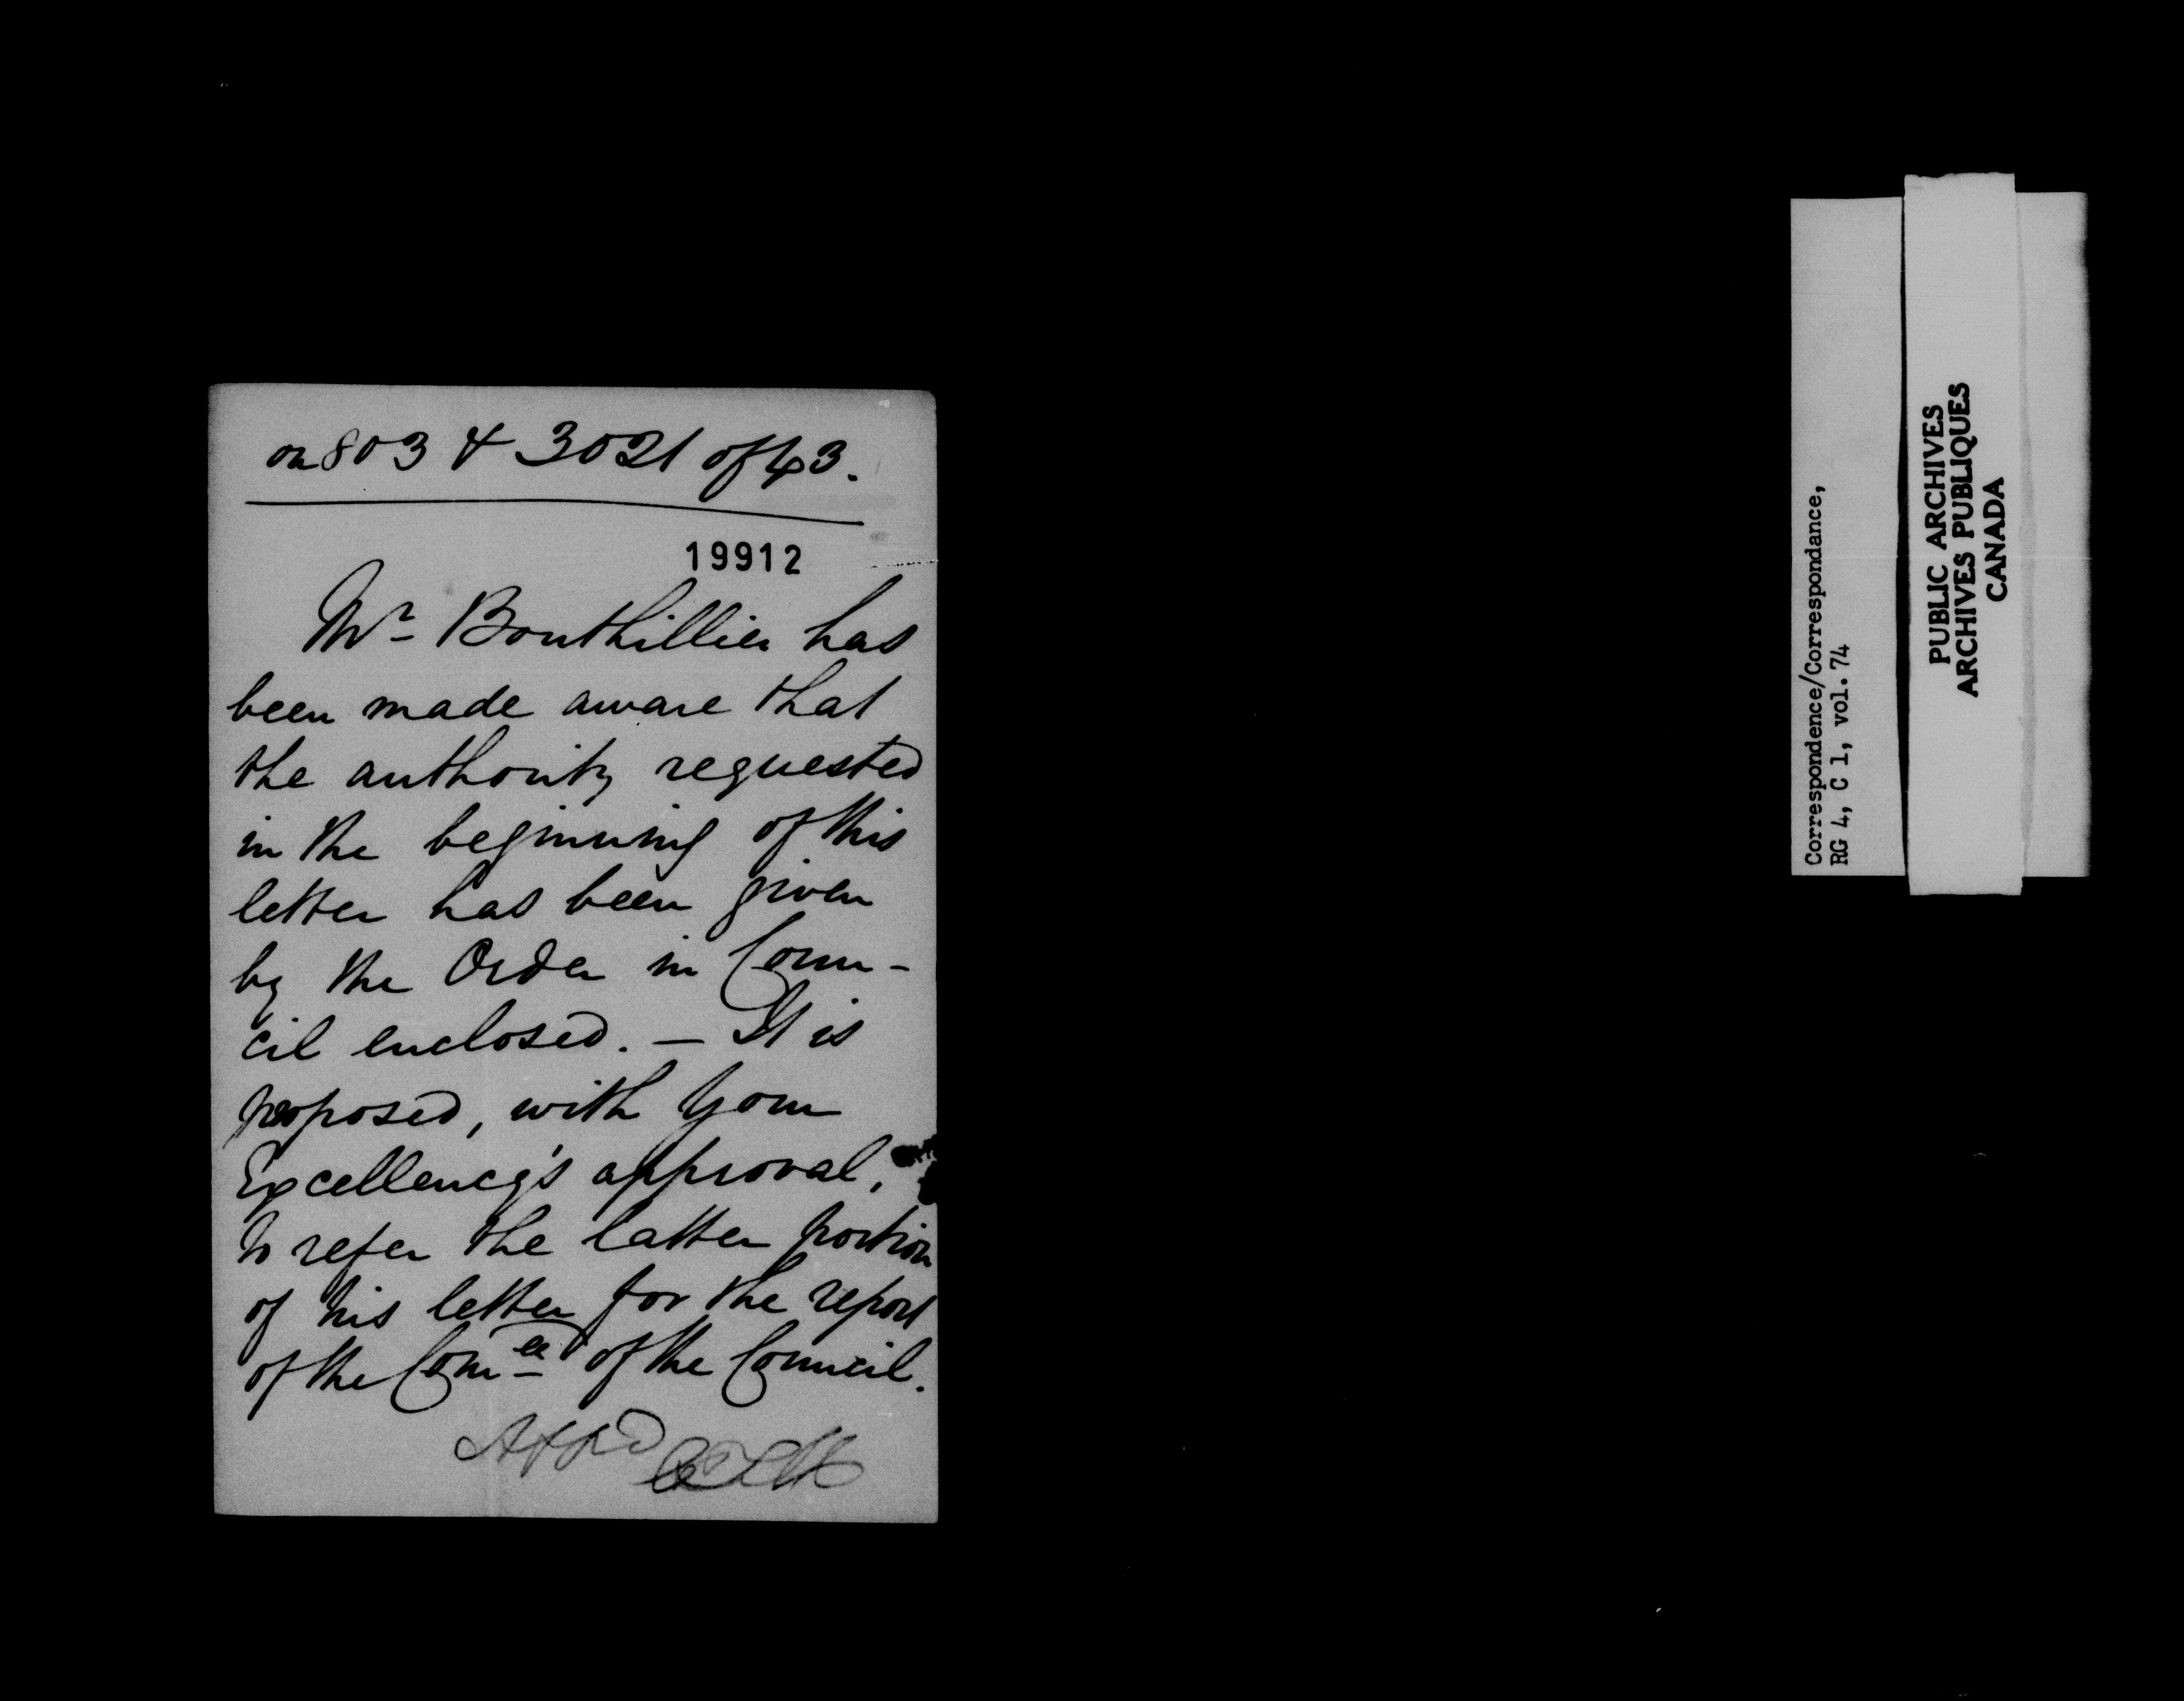 on 803 & 3021 of 43.
19912
Mr Bouthillier has
been made aware that
the authority requested
in the beginning of this
letter has been given
by the Order in Coun-
cil enclosed. — It is
proposed, with Your
Excellency's approval,
to refer the latter portion
of his letter for the report
of the Comee of the Council.
Appd
Correspondence/Correspondance,
RG 4, C 1, vol. 74
PUBLIC ARCHIVES
ARCHIVES PUBLIQUES
CANADA